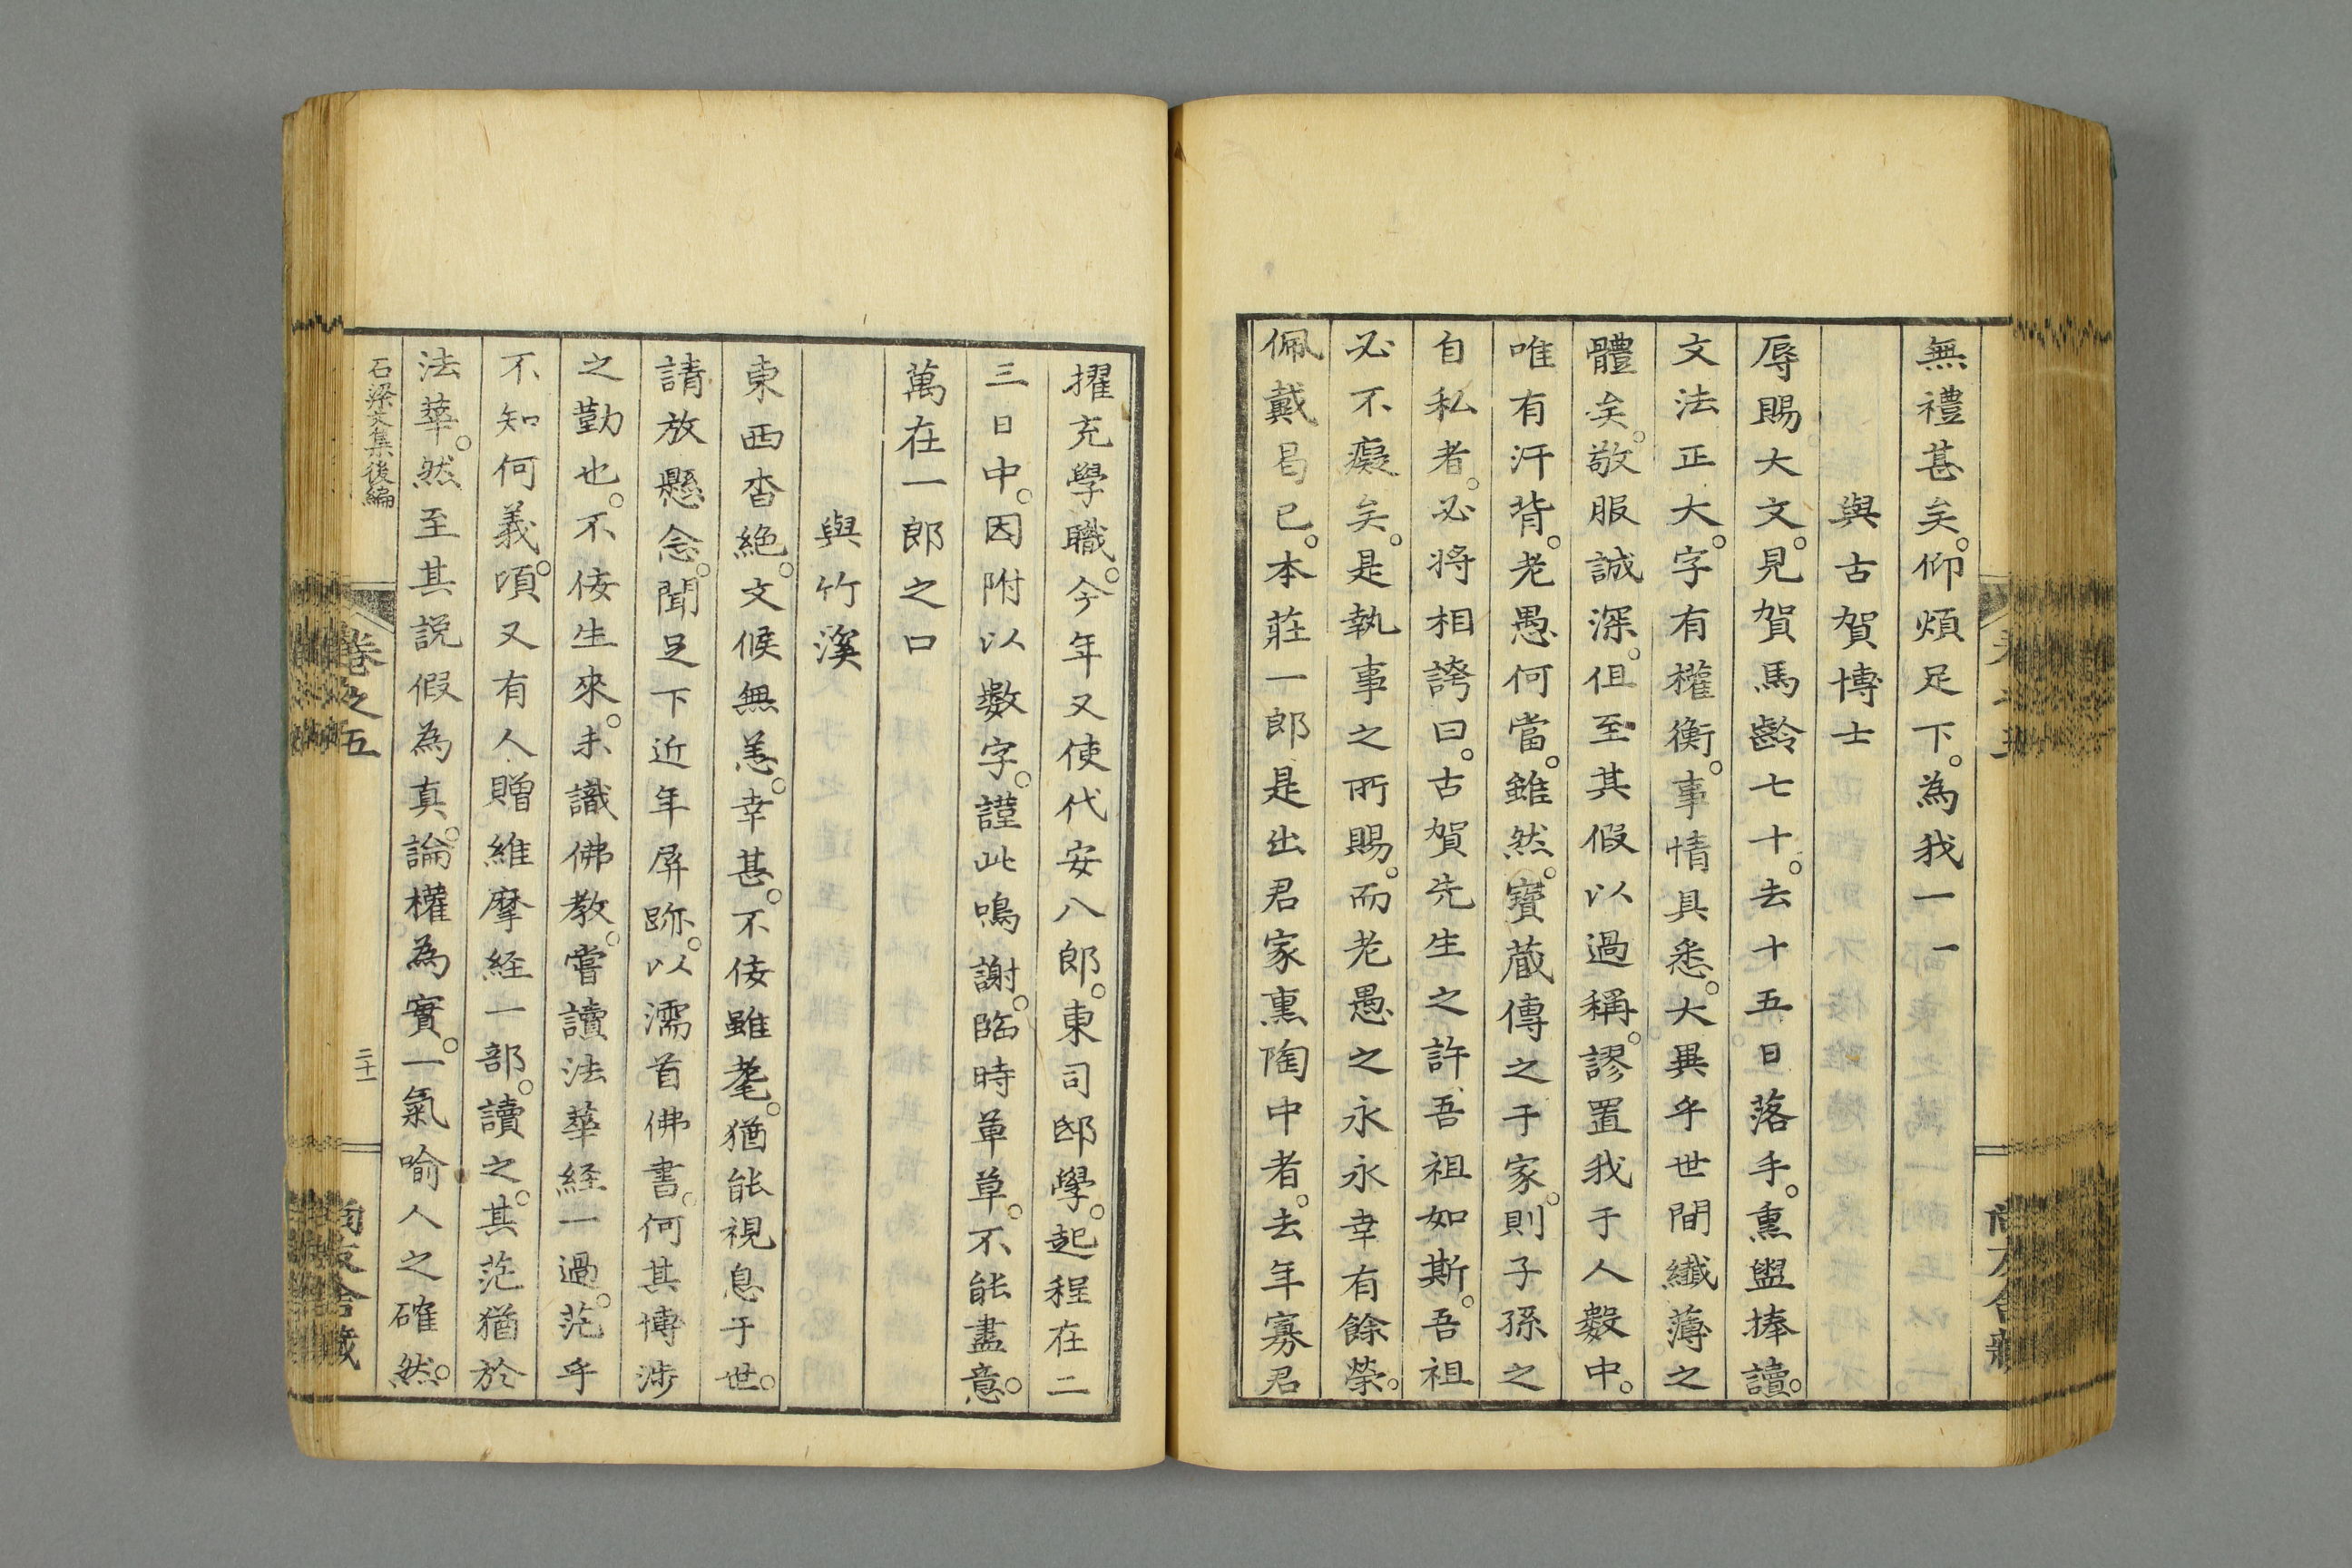 無禮甚矣。仰煩足下。為我一一
與古賀博士
辱賜大文。見賀馬齡七十。去十五日落手。熏盥捧讀。
文法正大。字有權衡。事情具悉。大異乎世間纖薄之
體矣。敬服誠深。但至其假以過稱。謬置我于人數中。
唯有汗背。老愚何當。雖然。寶蔵傳之于家。則子孫之
自私者。必將相誇曰。古賀先生之許吾祖如斯。吾祖
必不癡矣。是執事之所賜。而老愚之永永幸有餘榮。
佩戴曷已。本莊一郎是出君家熏陶中者。去年寡君
擢充學職。今年又使代安八郎。東司邸學。起程在二
三日中。因附以數字。謹此鳴謝。臨時草草。不能盡意。
萬在一郎之口
與竹溪
東西杳絶。文候無恙。幸甚。不佞雖耄。猶能視息于世。
請放懸念。聞足下近年屏跡。以濡首佛書。何其博涉
之勤也。不佞生來。未識佛教。嘗讀法華経一過。茫乎
不知何義。頃又有人贈維摩経一部。讀之。其茫猶於
法華。然至其説假為真。論權為實。一氣喻人之確然。
石梁文集後編
卷之五
二十一